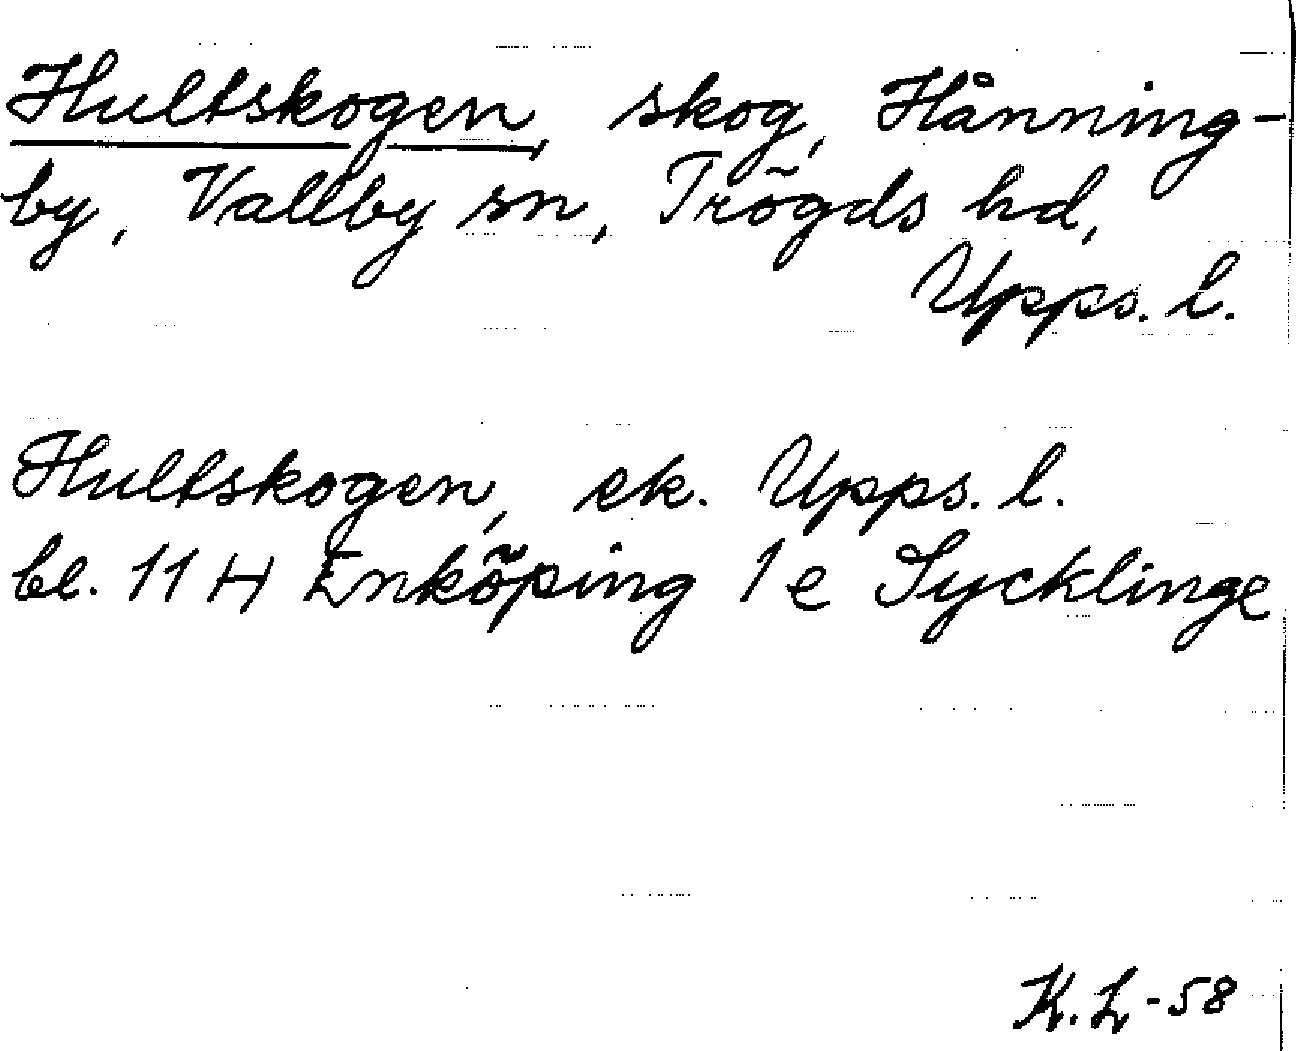 Hultskogen, skog, Hånning-
by, Vallby sn, Trögds hd,
Upps. l.
Hultskogen, ek. Upps. l.
bl. 11 H Enköping 1 e Sycklinge
K. L -58